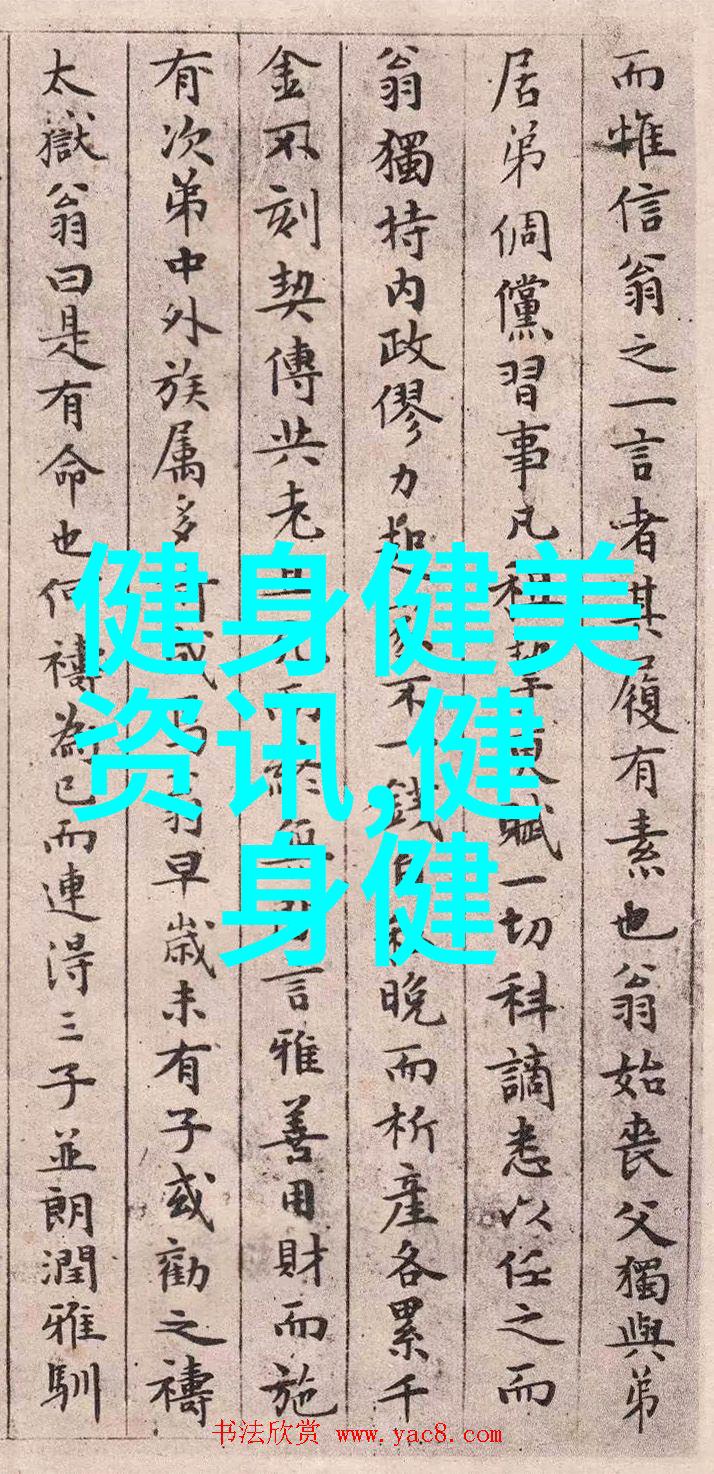 而惟信翁之一言者其履有素也翁始喪父獨與弟
居弟倜儻習事凡租挈更賦一切科謫悉以任之而
翁獨持内政僇力起家不一錢自私晚而析產各累千
金不刻契傳共老且死而終無間言雅善用財而施
有次第中外族属多 翁早歲未有子或勸之禱
太嶽翁曰是有命也何禱為已而連得三子並朗潤雅馴
健身健美
资讯,健
身健
书法欣赏 www.yac8.com